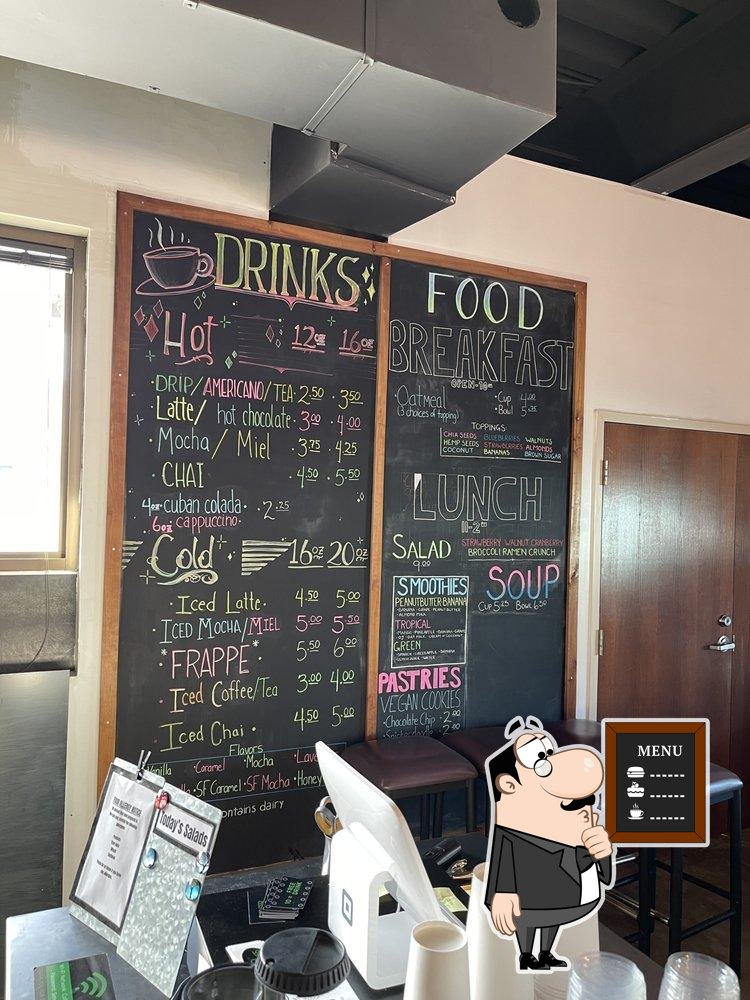 DRINKS
Hot 12oz 16oz
DRIP/AMERICANO/TEA 2.50 3.50
Latte/ hot chocolate 3.00 4.00
Mocha/Miel 3.75 4.25
CHAI 4.50 5.50
4oz cuban colada 2.25
6oz cappuccino
Cold 16oz 20oz
Iced Latte 4.50 5.00
ICED MOCHA/MIEL 5.00 5.50
*FRAPPE* 5.50 6.00
Iced Coffee/Tea 3.00 4.00
Iced Chai 4.50 5.00
Flavors
Vanilla Caramel Mocha
SF Caramel SF Mocha Honey
contains dairy
FOOD
BREAKFAST
OPEN-10
Oatmeal Cup 4.00
(3 choices of topping) Bowl
TOPPINGS:
CHIA SEEDS BLUEBERRIES WALNUTS
HEMP SEEDS STRAWBERRIES ALMONDS
COCONUT BANANAS BROWN SUGAR
LUNCH
11-2
SALAD STRAWBERRY WALNUT CRANBERRY
9.00 BROCCOLI RAMEN CRUNCH
SMOOTHIES
PEANUTBUTTER BANANA
TROPICAL
GREEN
SOUP
Cup 5.25 Bowl 6.50
PASTRIES
VEGAN COOKIES
Chocolate Chip 2.00
Today's Salads
MENU